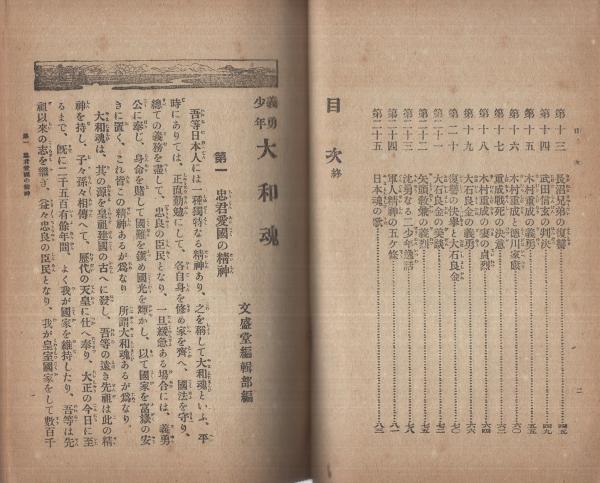 目次
第十三 長沼兄弟の復讐 四五
第十四 武田信玄の判決 四九
第十五 木村重成の義勇 五五
第十六 木村重成と徳川家康 六〇
第十七 重成戰死の決意 六三
第十八 木村重成の妻の貞烈 六四
第十九 大石良金の義勇 六六
第二十 復讐の快擧と大石良金 七〇
第二十一 大石良金の美談
第二十二 矢頭敎兼の義烈 七五
第二十三 沈勇なる二少年逸話
第二十四 軍人精神の五ケ條 八一
第二十五 日本魂の歌 八三
目次 終
二
義勇少年 大和魂
文盛堂編輯部編
第一 忠君愛國の精神
吾等日本人には一種獨特なる精神あり、之を稱して大和魂といふ、平
時にありては、正直勤勉にして、各自身を修め家を齊へ、國法を守り、
總ての義務を盡して、忠良の臣民となり、一旦緩急ある場合には、義勇
公に奉じ、身命を賭して國難を護め國光を輝かし、以て國家を富嶽の安
きに置く、これ皆この精神あるが爲なり、所謂大和魂あるが爲なり。
大和魂は、其の源を皇祖建國の古へに發し、吾等の遠き先祖は此の精
神を持し、子々孫々相傳へて、歷代の天皇に仕へ奉り、大正の今日に至
るまで、旣に二千五百有餘年間、よく我が國家を維持したり、吾等は先
祖以來の志を繼ぎ、益々忠良の臣民となり、我が皇室國家をして數百千
第一 忠君愛國の精神
一